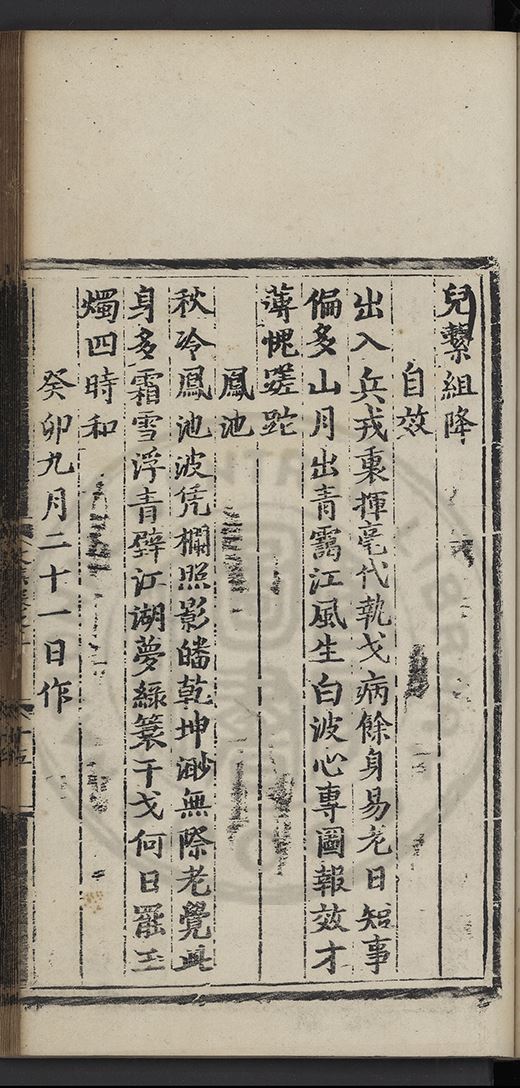 兒繫組降
自效
出入兵戎裏揮毫代執戈病餘身易老日知事
偏多山月出青靄江風生白波心專圖報效才
薄愧蹉跎
鳳池
秋冷鳳池波凭欄照影皤乾坤渺無際老覺此
身多霜雪浮青壁江湖夢綠簑干戈何日罷玉
燭四時和
癸卯九月二十一日作